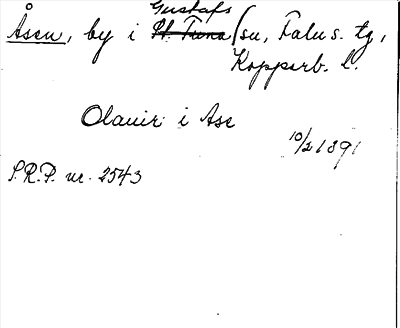 Gustafs
Åsen, by i St. Tuna sn, Falu s. tg,
Kopparb. l.
Olauir i Ase
10/2 1391
S.R.P. nr. 2543